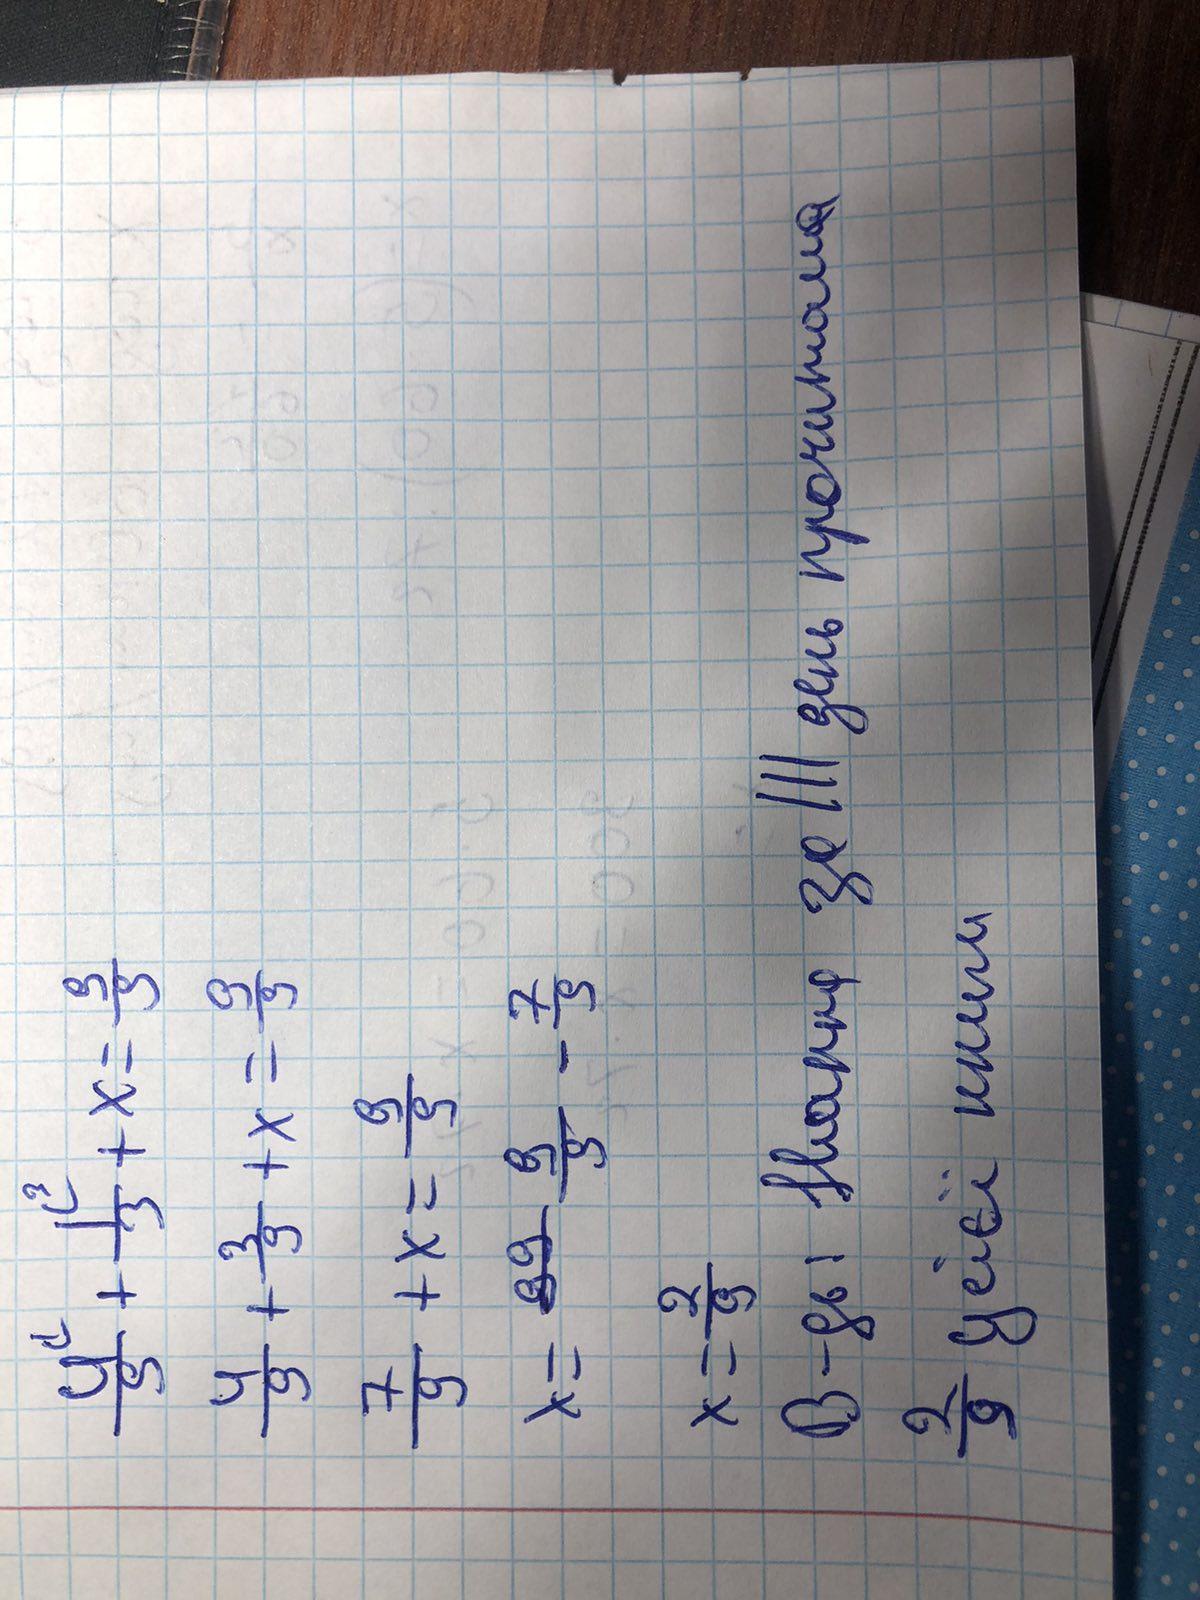 4/9 + 1/3 + x = 9/9
4/9 + 3/9 + x = 9/9
7/9 + x = 9/9
x = 9/9 - 7/9
x = 2/9
В-дь: Іванна за III день прочитала
2/9 усієї книги